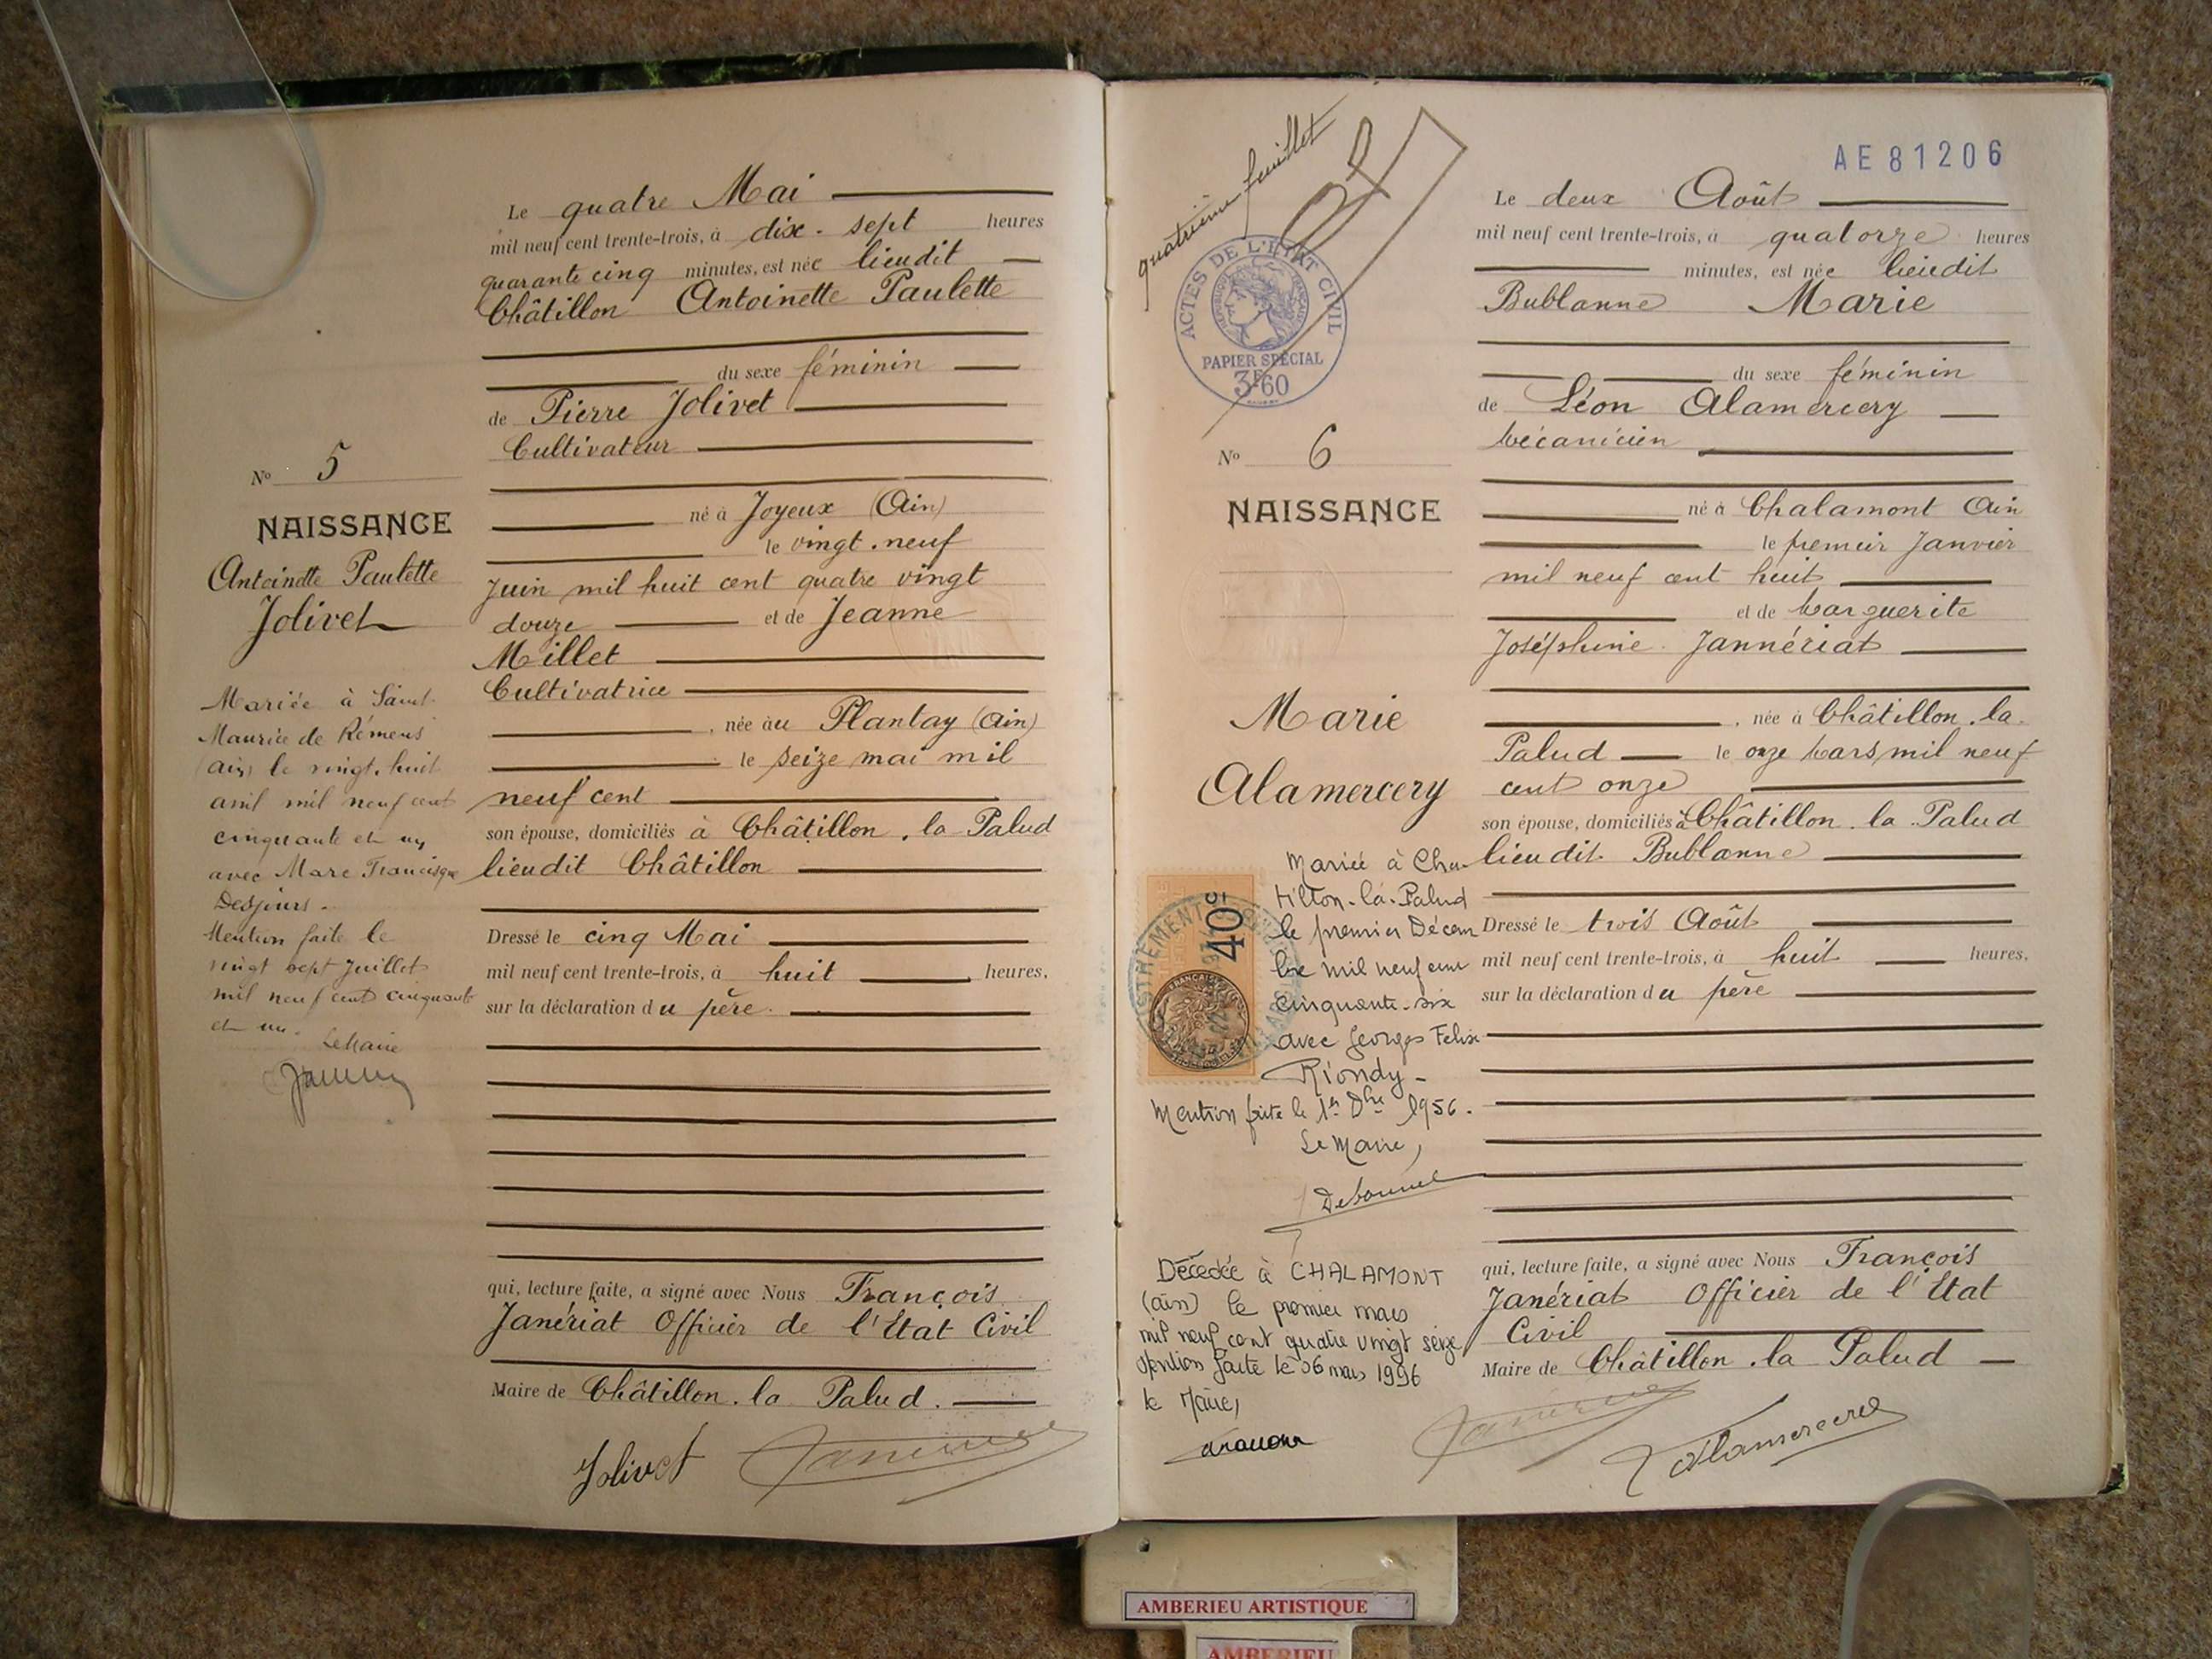 Le quatre Mai
mil neuf cent trente-trois, à dix-sept heures
quarante cinq minutes, est née lieudit
Châtillon Antoinette Paulette
du sexe féminin
de Pierre Jolivet
Cultivateur
né à Joyeux (Ain)
le vingt-neuf
Juin mil huit cent quatre vingt
douze et de Jeanne
Millet
Cultivatrice
, née au Plantay (Ain)
le seize mai mil
neuf cent
son épouse, domiciliés à Châtillon-la-Palud
lieudit Châtillon
Dressé le cinq Mai
mil neuf cent trente-trois, à huit heures,
sur la déclaration du père.
qui, lecture faite, a signé avec Nous François
Janériat Officier de l'Etat Civil
Maire de Châtillon-la Palud.
Jolivet
No 5
NAISSANCE
Antoinette Paulette
Jolivet
Mariée à Saint-
Maurice de Rémens
(ain) le vingt-huit
avril mil neuf cent
cinquante et un
avec Marc Francisque
Desjours.
Mention faite le
vingt sept Juillet
mil neuf cent cinquante
et un.
Le Maire
quatrième feuillet
ACTES DE L'ÉTAT CIVIL
RÉPUBLIQUE FRANÇAISE
PAPIER SPÉCIAL
3F60
AE81206
No 6
NAISSANCE
Marie
Alamercery
40c
Mariée à Cha-
tillon-la-Palud
le premier Décem
bre mil neuf cent
cinquante-six
avec Georges Felix
Riondy-
Mention faite le 1er Dbre 1956.
Le Maire,
Décédée à CHALAMONT
(ain) le premier mars
mil neuf cent quatre vingt seize
Mention faite le 06 mars 1996
le Maire,
Le deux Août
mil neuf cent trente-trois, à quatorze heures
minutes, est née lieudit
Bublanne Marie
du sexe féminin
de Léon Alamercery
Mécanicien
né à Chalamont Ain
le premier Janvier
mil neuf cent huit
et de Marguerite
Joséphine Jannériat
, née à Châtillon-la-
Palud le onze Mars mil neuf
cent onze
son épouse, domiciliés à Châtillon-la-Palud
lieudit Bublanne
Dressé le trois Août
mil neuf cent trente-trois, à huit heures,
sur la déclaration du père
qui, lecture faite, a signé avec Nous François
Janériat Officier de l'Etat
Civil
Maire de Châtillon-la Palud
AMBERIEU ARTISTIQUE
AMBERIEU